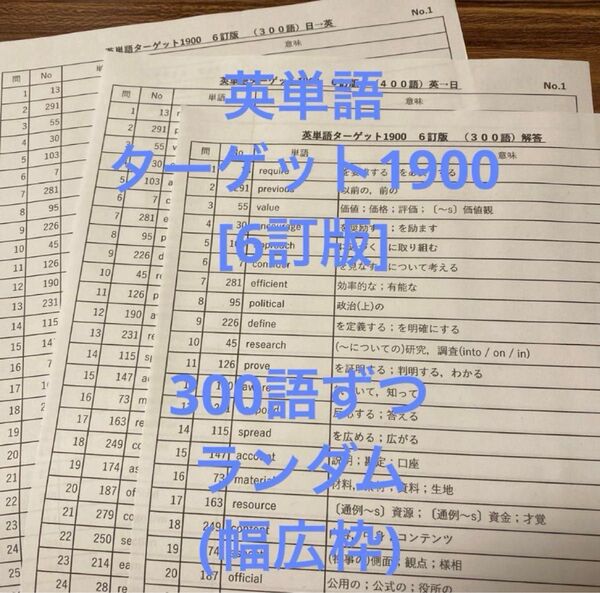 英単語ターゲット1900 6訂版 (300語) 日→英
No.1
問 No 意味
1 13
2 291
3 55
4 30
5 103
6 7
7 281
8 95
9 226
10 45
11 126
12 190
13 231
14 115
15 147
16 73
17 163
18
No.1
問 No 単語 意味
1 13
2 291
3 55
4 30
5 103
6 7
7 281
8 95
9 226
10 45
11 126
12 190
13 231
14 115
15 147
16 73
17 163
18 249
19 174
20 187
21 279
22 250
23 214
24 28
英単語ターゲット1900 6訂版 (300語) 解答
No.1
問 No 単語 意味
1 require
2 291 previous 以前の，前の
3 55 value 価値；価格；評価；〔～s〕価値観
4 30 encourage を奨励する；を励ます
5 approach に取り組む
6 7 consider を見なす；について考える
7 281 efficient 効率的な；有能な
8 95 political 政治(上)の
9 226 define を定義する；を明確にする
10 45 research (～についての)研究，調査(into / on / in)
11 126 prove を証明する；判明する，わかる
14 115 spread を広める；広がる
15 147 account 説明；勘定；口座
16 73 material 材料，資料；生地
17 163 resource 〔通例～s〕資源；〔通例～s〕資金；才覚
18 249 content コンテンツ
19 側面；観点；様相
20 187 official 公用の；公式の；役所の
英単語
ターゲット1900
[6訂版]
300語ずつ
ランダム
(幅広枠)